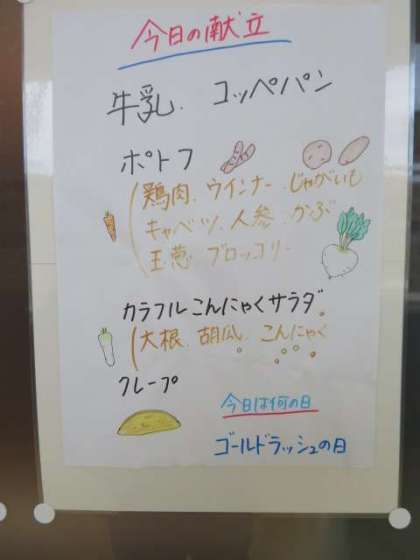 今日の献立
牛乳. コッペパン
ポトフ
鶏肉. ウインナー. じゃがいも
キャベツ. 人参. かぶ
玉葱. ブロッコリー
カラフルこんにゃくサラダ
大根. 胡瓜. こんにゃく
クレープ
今日は何の日
ゴールドラッシュの日